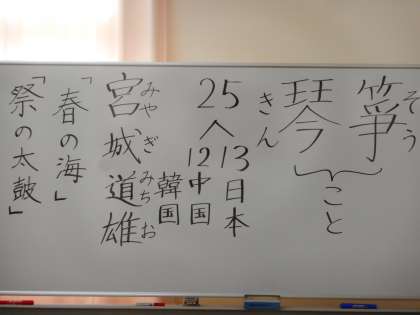 箏 そう
琴 きん
こと
25
13 日本
12 中国
韓国
宮城道雄
みやぎみちお
「春の海」
「祭の太鼓」